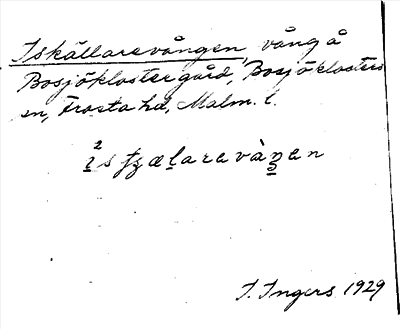 Iskällarevången, vång å
Bosjökloster gård, Bosjöklosters
sn, Frosta hd, Malm. l.
I. Ingers 1929